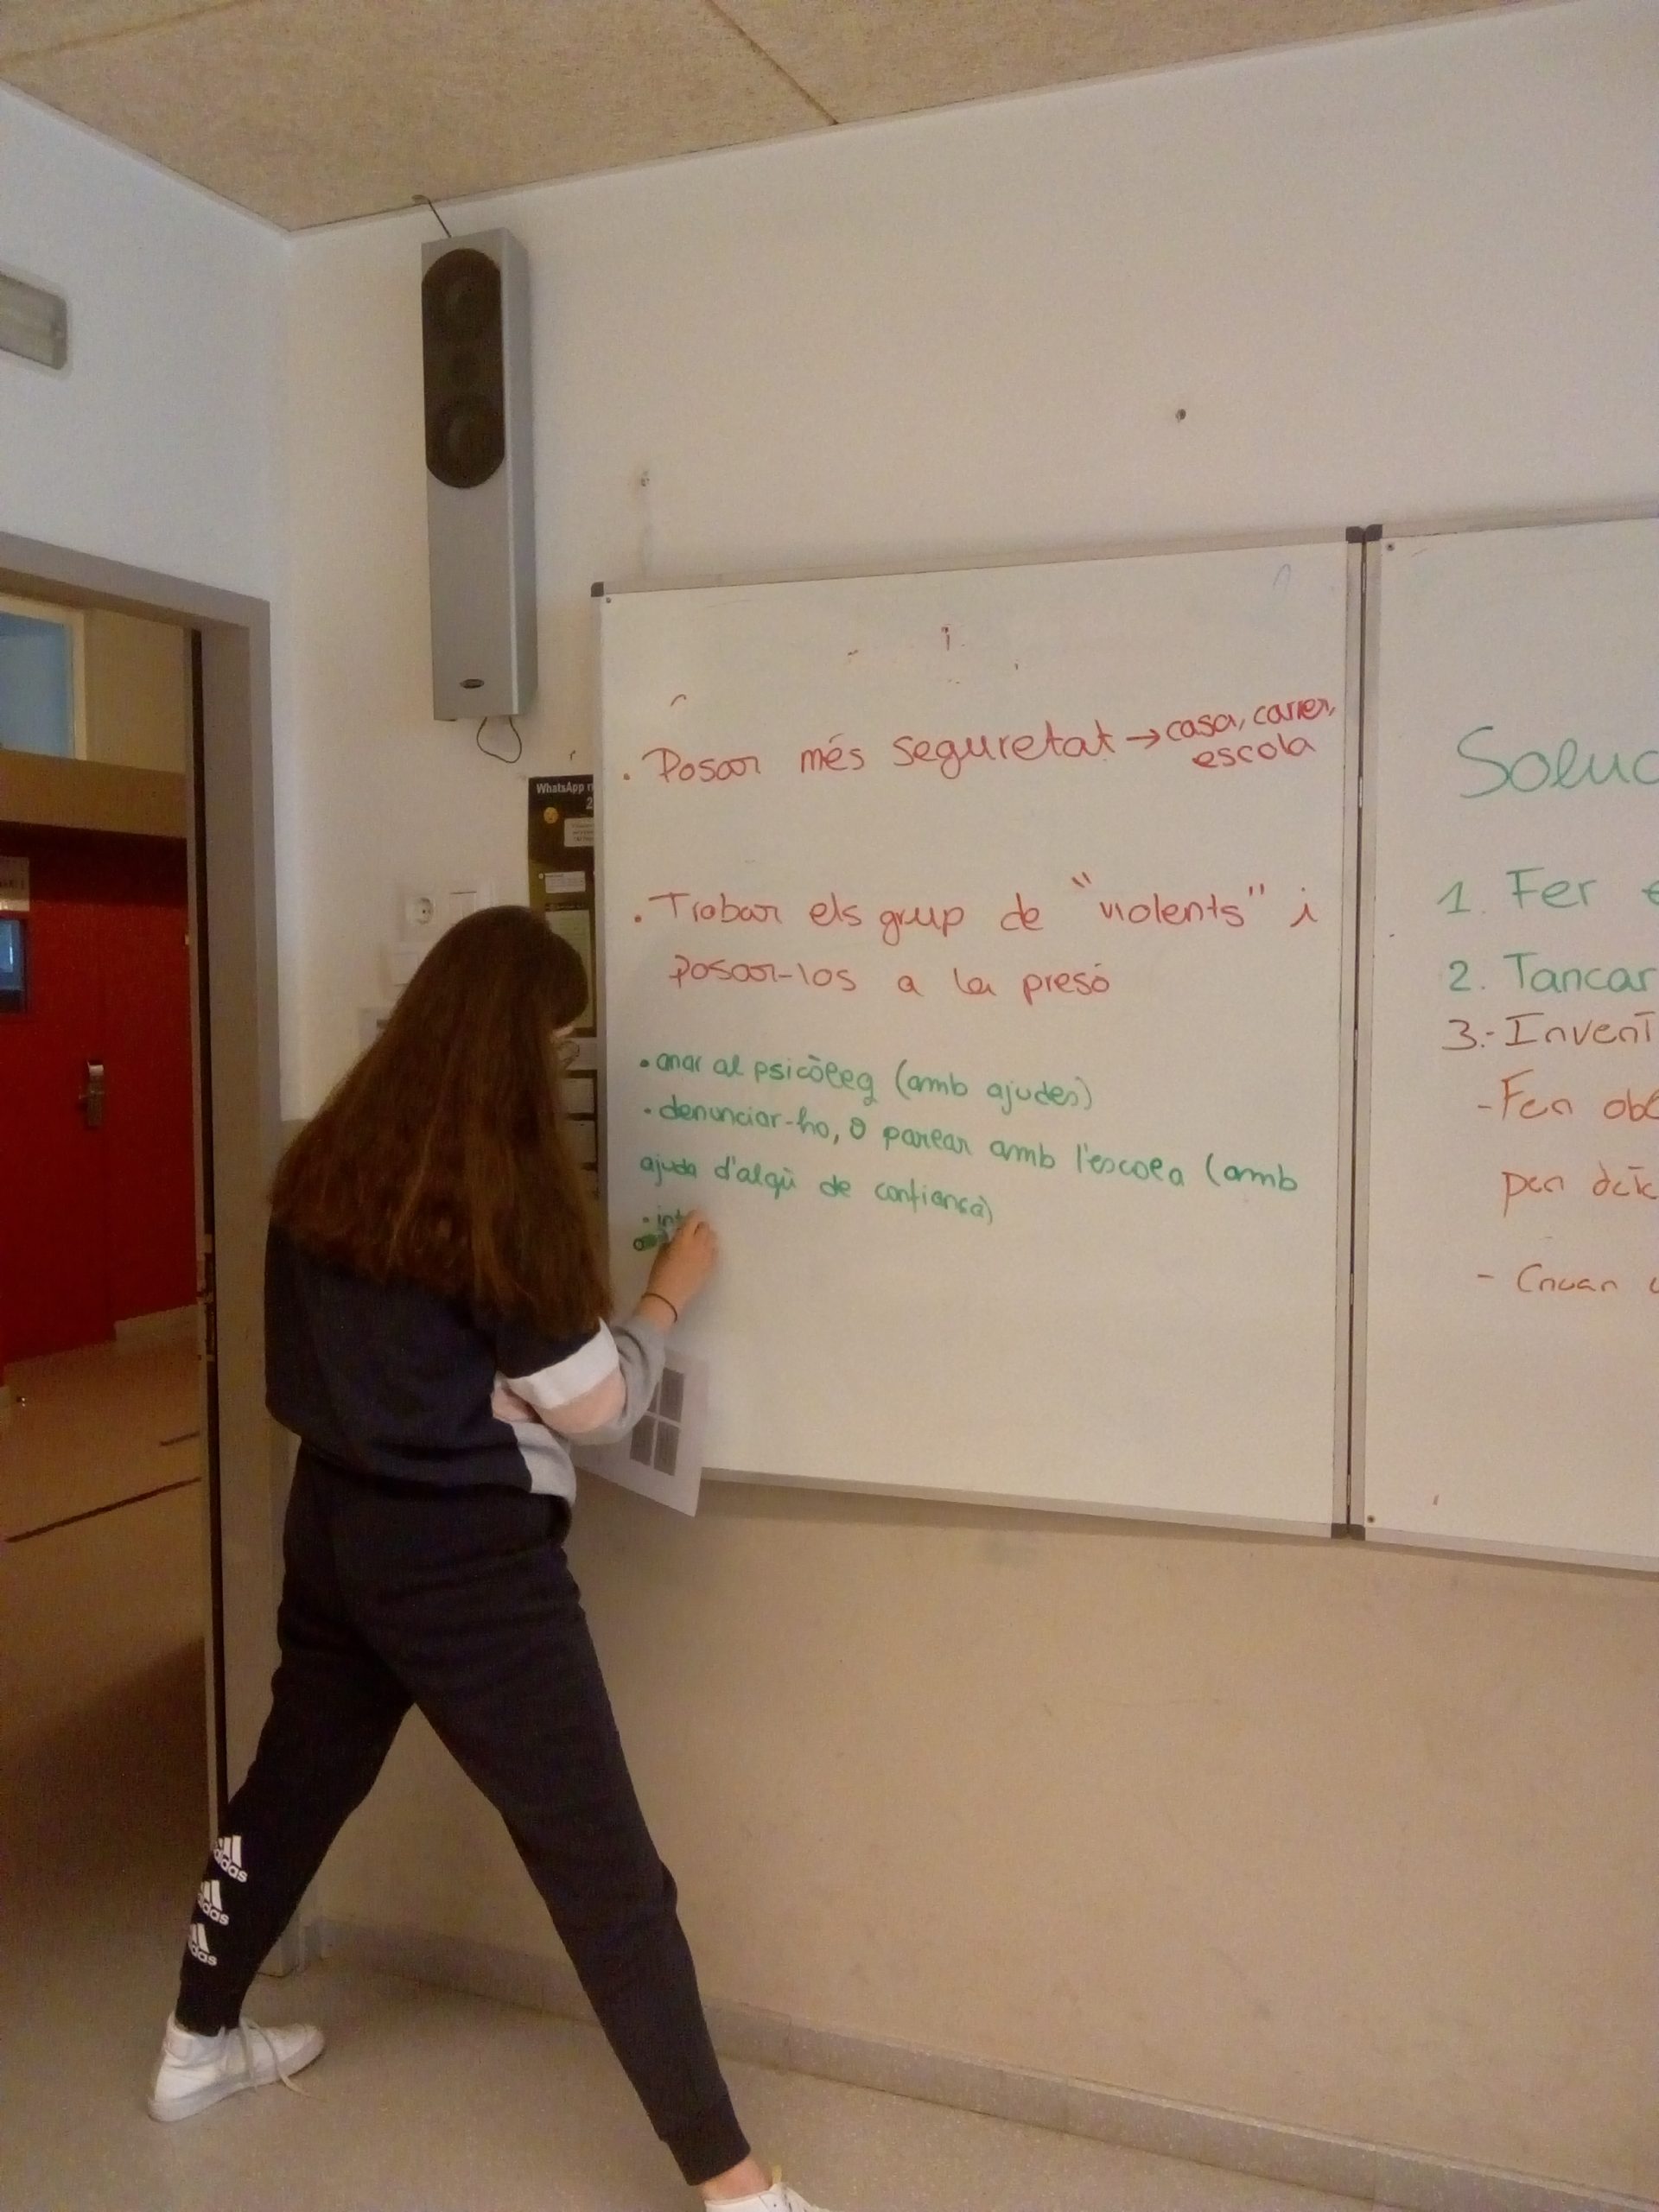 . Posar més seguretat → casa, carrer,
escola
. Trobar els grup de "violents" i
posar-los a la presó
• anar al psicòleg (amb ajudes)
• denunciar-ho, o parlar amb l'escola (amb
ajuda d'algù de confiança)
• int
Soluc
1. Fer
2. Tancar
3.- Invent
- Fer obl
per
- Crear
WhatsApp
adidas
adidas
adidas